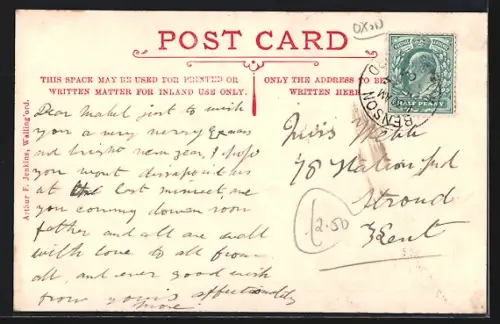 OXON
POST CARD
THIS SPACE MAY BE USED FOR PRINTED OR
WRITTEN MATTER FOR INLAND USE ONLY.
ONLY THE ADDRESS TO BE
WRITTEN HERE
HALF PENNY
BENSON
Arthur F. Jenkins, Walling'ord.
Dear Mabel just to wish
you a very merry Xmas
and bright new year, I hope
you wont disapoint us
at the last
you coming down soon
father and all are well
with love to all from
all and ever good wish
from yours affectionately
Miss
78 Station Rd
Strood
Kent
12.50